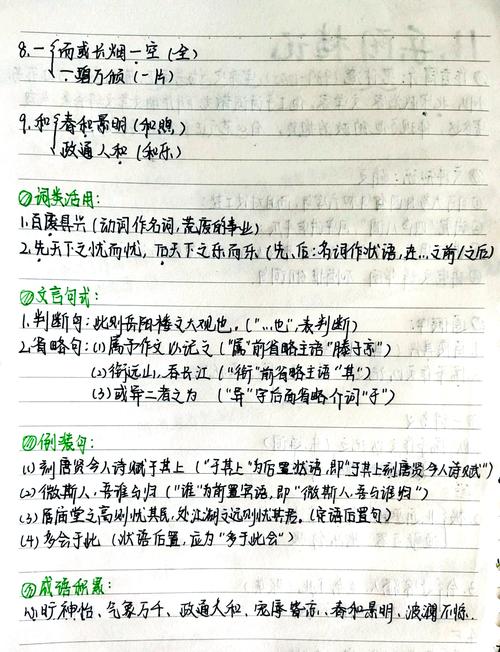 8.一{而或长烟一空(全)
一碧万顷(一片)
9.和{春和景明(和煦)
政通人和(和乐)
词类活用:
1.百废具兴(动词作名词,荒废的事业)
2.先天下之忧而忧,后天下之乐而乐(先、后:名词作状语,在…之前/之后)
文言句式:
1.判断句:此则岳阳楼之大观也。("…也",表判断)
2.省略句:(1)属予作文以记之("属"前省略主语"滕子京")
(2)衔远山,吞长江("衔"前省略主语"其")
(3)或异二者之为("异"字后面省略介词"于")
倒装句:
(1)刻唐贤今人诗赋于其上("于其上"为后置状语,即"于其上刻唐贤今人诗赋")
(2)微斯人,吾谁与归("谁"为前置宾语,即"微斯人,吾与谁归")
(3)居庙堂之高则忧其民,处江湖之远则忧其君。(定语后置句)
(4)多会于此(状语后置,应为"多于此会")
成语积累:
心旷神怡、气象万千、政通人和、春和景明、波澜不惊.